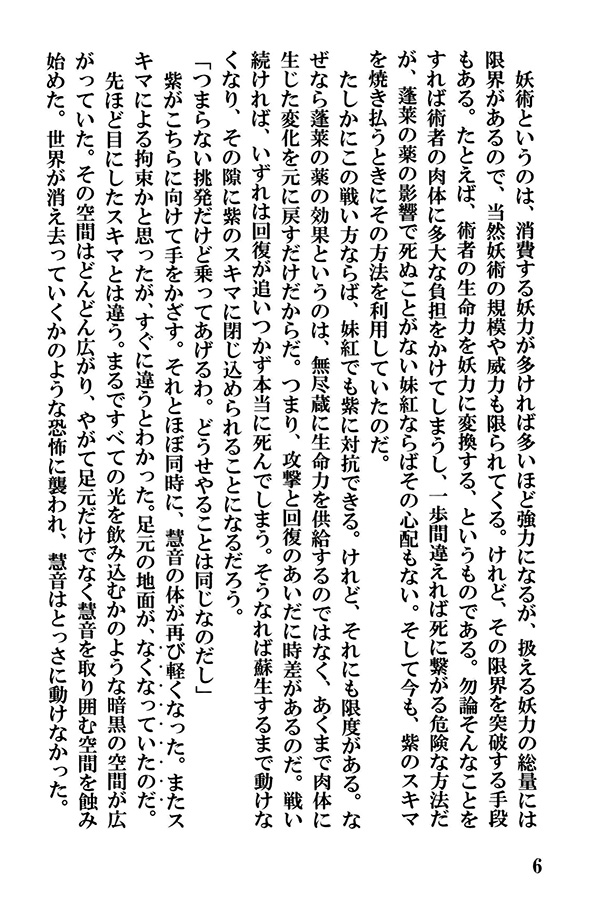 妖術というのは、消費する妖力が多ければ多いほど強力になるが、扱える妖力の総量には
限界があるので、当然妖術の規模や威力も限られてくる。けれど、その限界を突破する手段
もある。たとえば、術者の生命力を妖力に変換する、というものである。勿論そんなことを
すれば術者の肉体に多大な負担をかけてしまうし、一歩間違えれば死に繋がる危険な方法だ
が、蓬莱の薬の影響で死ぬことがない妹紅ならばその心配もない。そして今も、紫のスキマ
を焼き払うときにその方法を利用していたのだ。
　たしかにこの戦い方ならば、妹紅でも紫に対抗できる。けれど、それにも限度がある。な
ぜなら蓬莱の薬の効果というのは、無尽蔵に生命力を供給するのではなく、あくまで肉体に
生じた変化を元に戻すだけだからだ。つまり、攻撃と回復のあいだに時差があるのだ。戦い
続ければ、いずれは回復が追いつかず本当に死んでしまう。そうなれば蘇生するまで動けな
くなり、その隙に紫のスキマに閉じ込められることになるだろう。
「つまらない挑発だけど乗ってあげるわ。どうせやることは同じなのだし」
　紫がこちらに向けて手をかざす。それとほぼ同時に、慧音の体が再び軽くなった。またス
キマによる拘束かと思ったが、すぐに違うとわかった。足元の地面が、なくなっていたのだ。
　先ほど目にしたスキマとは違う。まるですべての光を飲み込むかのような暗黒の空間が広
がっていた。その空間はどんどん広がり、やがて足元だけでなく慧音を取り囲む空間を蝕み
始めた。世界が消え去っていくかのような恐怖に襲われ、慧音はとっさに動けなかった。
6